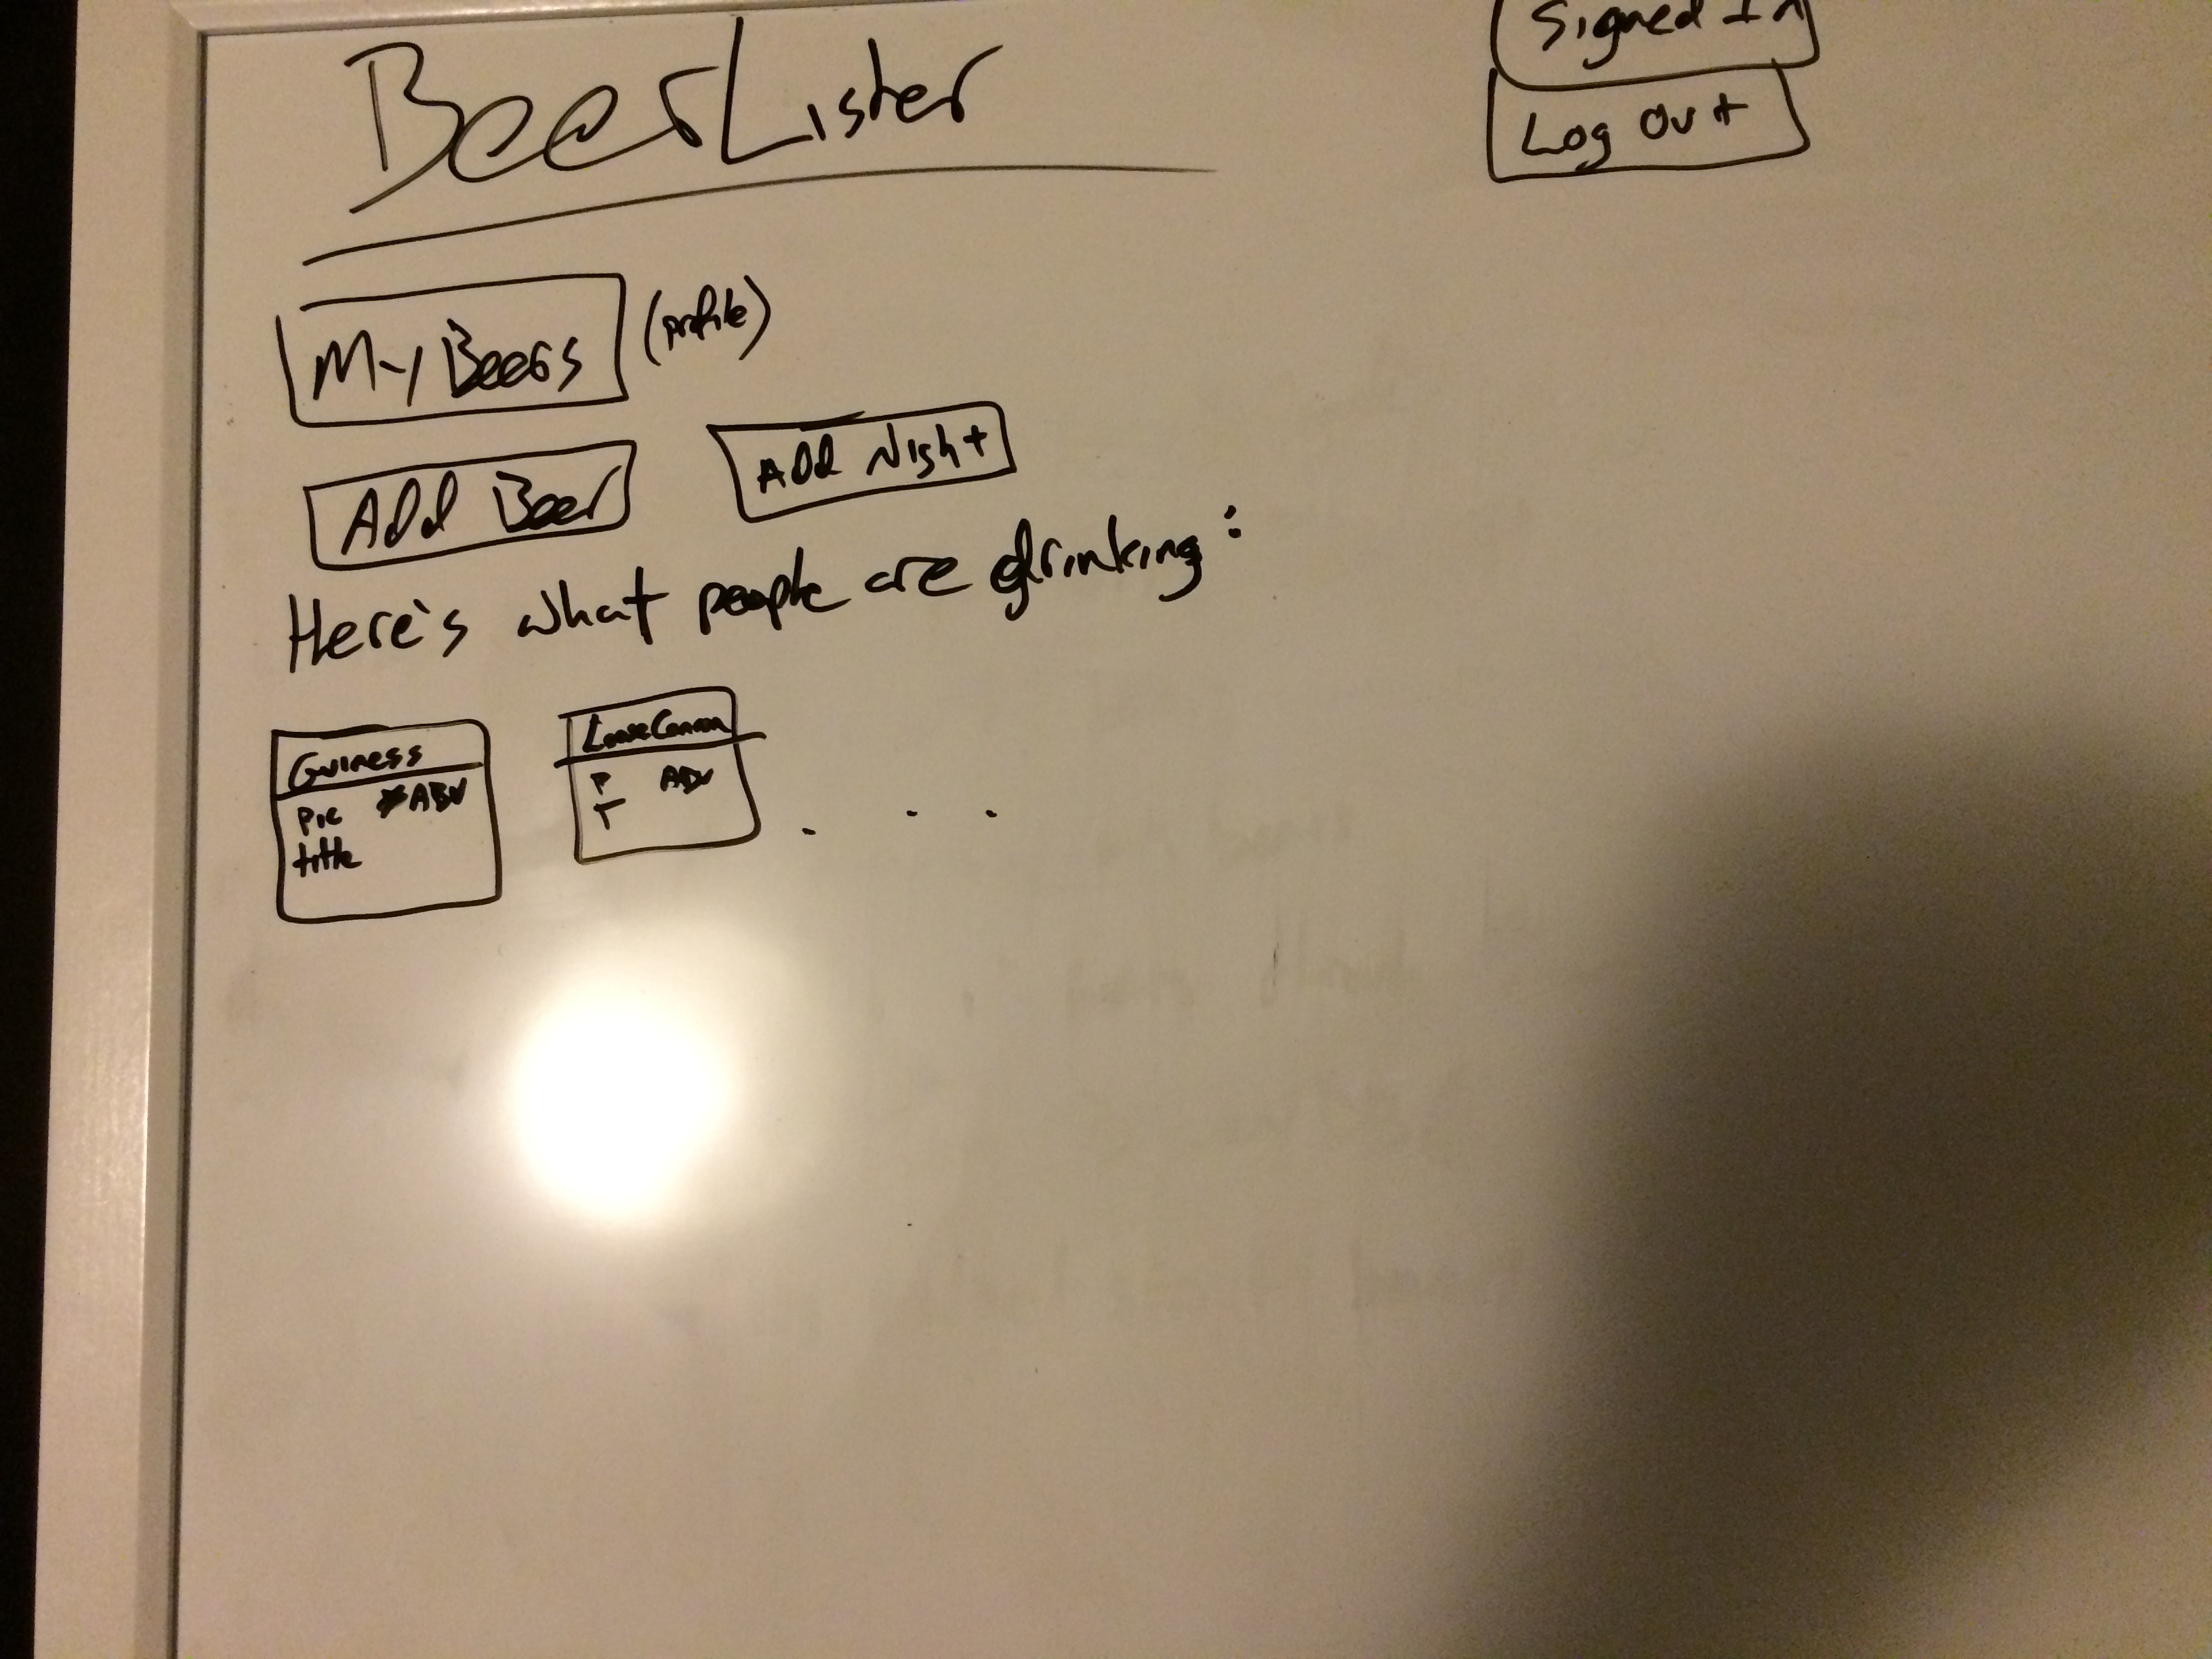 BeerLister
Signed In
Log out
My Beers (profile)
Add Beer
Add Night
Here's what people are drinking:
Guiness
Pic ABV
title
Loose Cannon
P ABV
T
. . .